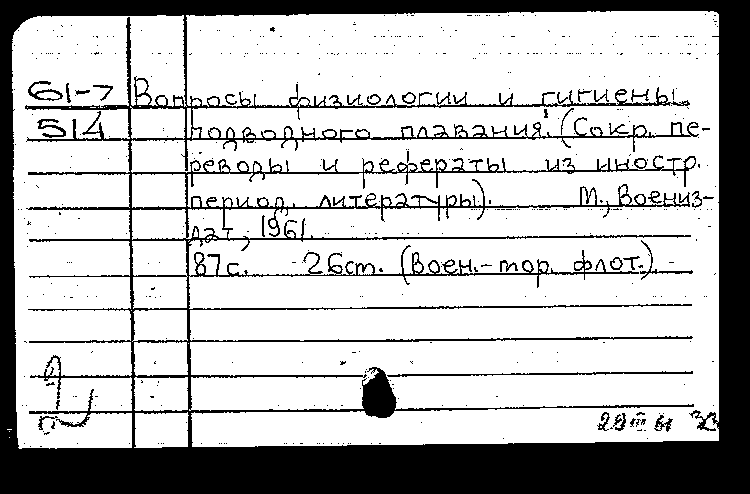 61-7 Вопросы физиологии и гигиены
514 подводного плавания. (Сокр. пе-
реводы и рефераты из иностр.
период. литературы). М., Воениз-
дат, 1961.
87с. 26см. (Воен.-мор. флот.).
28 III 61